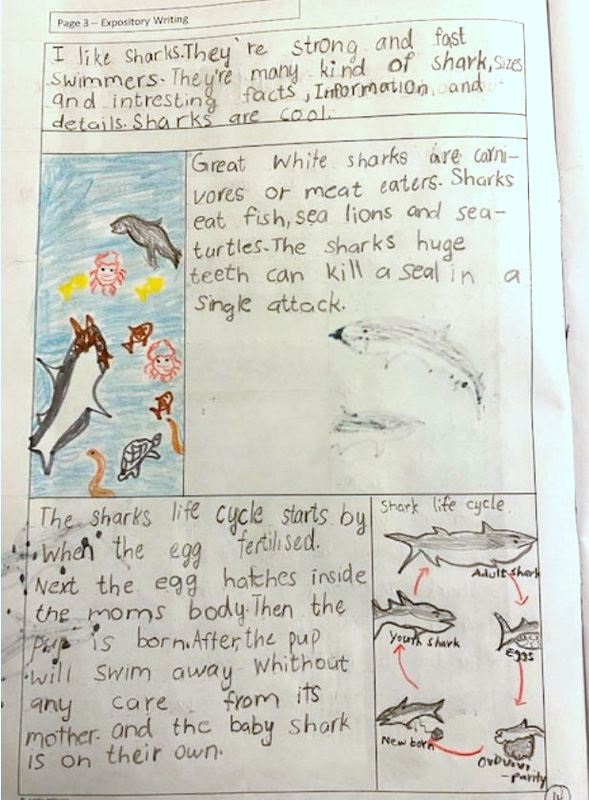 Page 3 – Expository Writing
I like sharks. They're strong and fast
swimmers. They're many kind of shark, sizes
and intresting facts, Information, and
details. Sharks are cool.
Great white sharks are carni-
vores or meat eaters. Sharks
eat fish, sea lions and sea-
turtles. The sharks huge
teeth can kill a seal in a
single attack.
The sharks life cycle starts by
when the egg fertilised.
Next the egg hatches inside
the moms body. Then the
pup is born. After, the pup
will swim away whithout
any care from its
mother. and the baby shark
is on their own.
Shark life cycle.
Adult shark
Eggs
-parity
New born
Youth shark
14